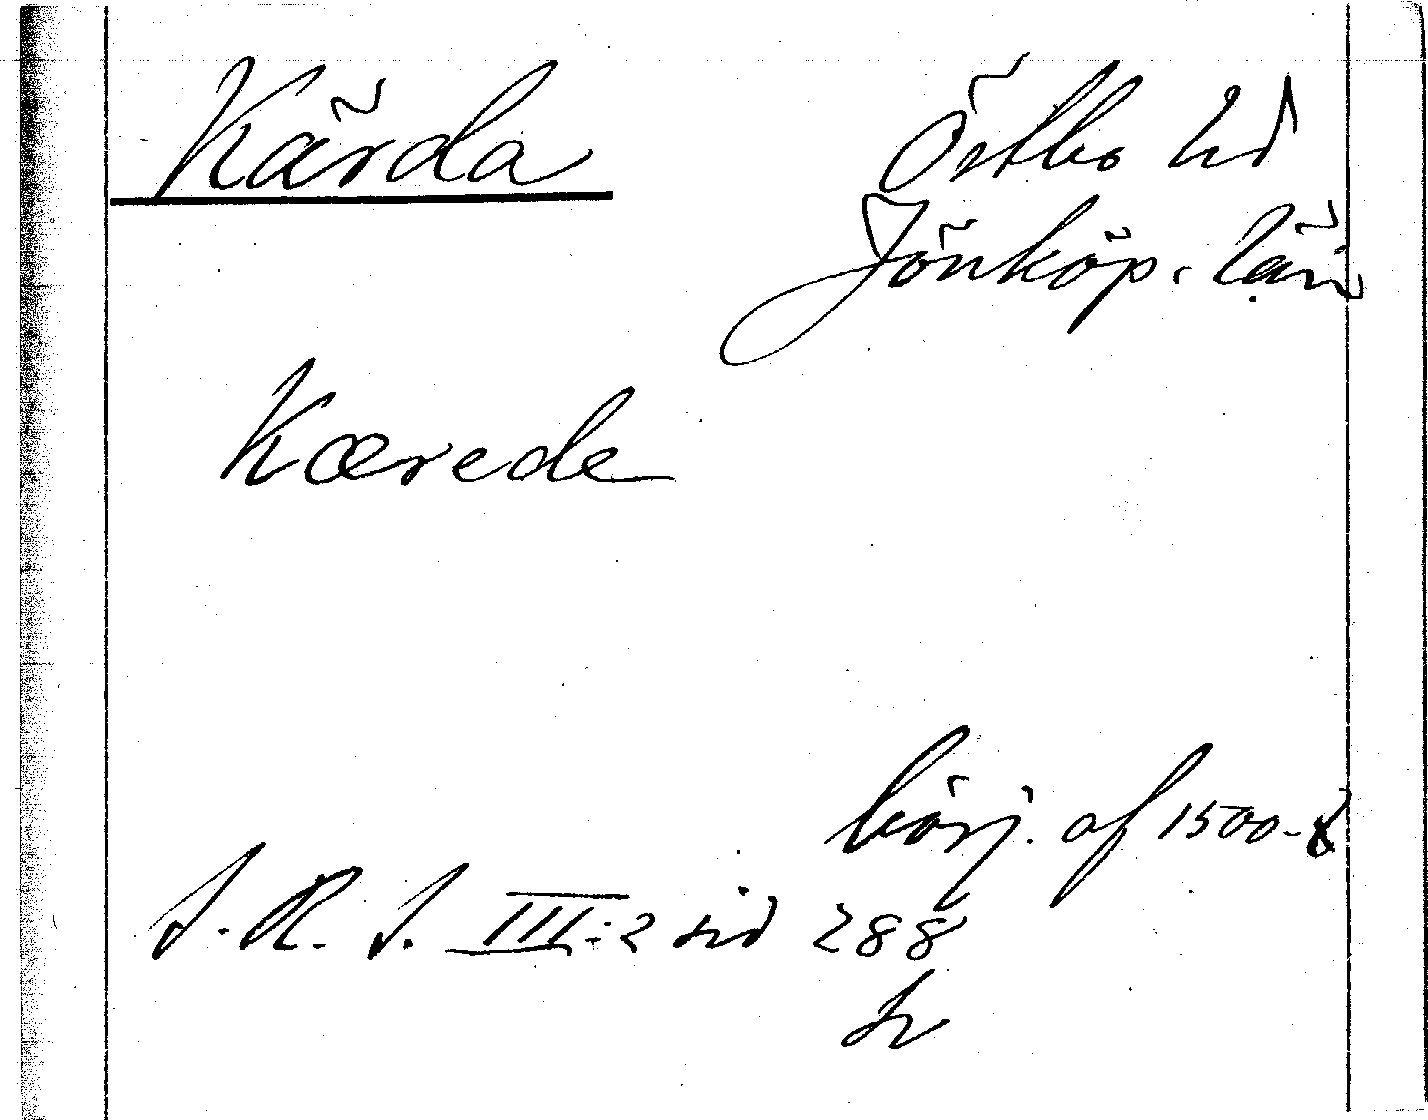 Kärda
Östbo hd
Jönköp. län
Kærede
börj. af 1500-t
S. R. S. III:2 sid 288